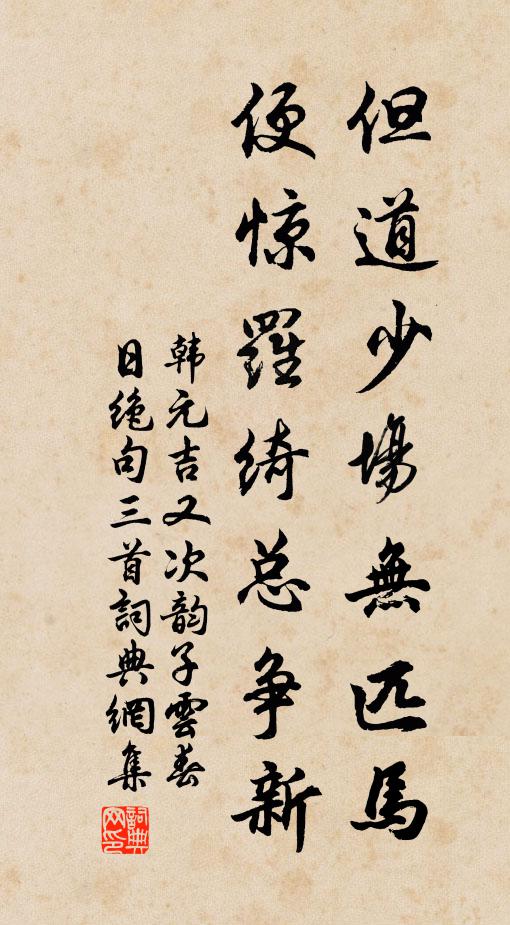 但道少場無匹馬
便惊羅綺总争新
韩元吉又次韵子雲春
日绝句三首詞典網集
詞典网印